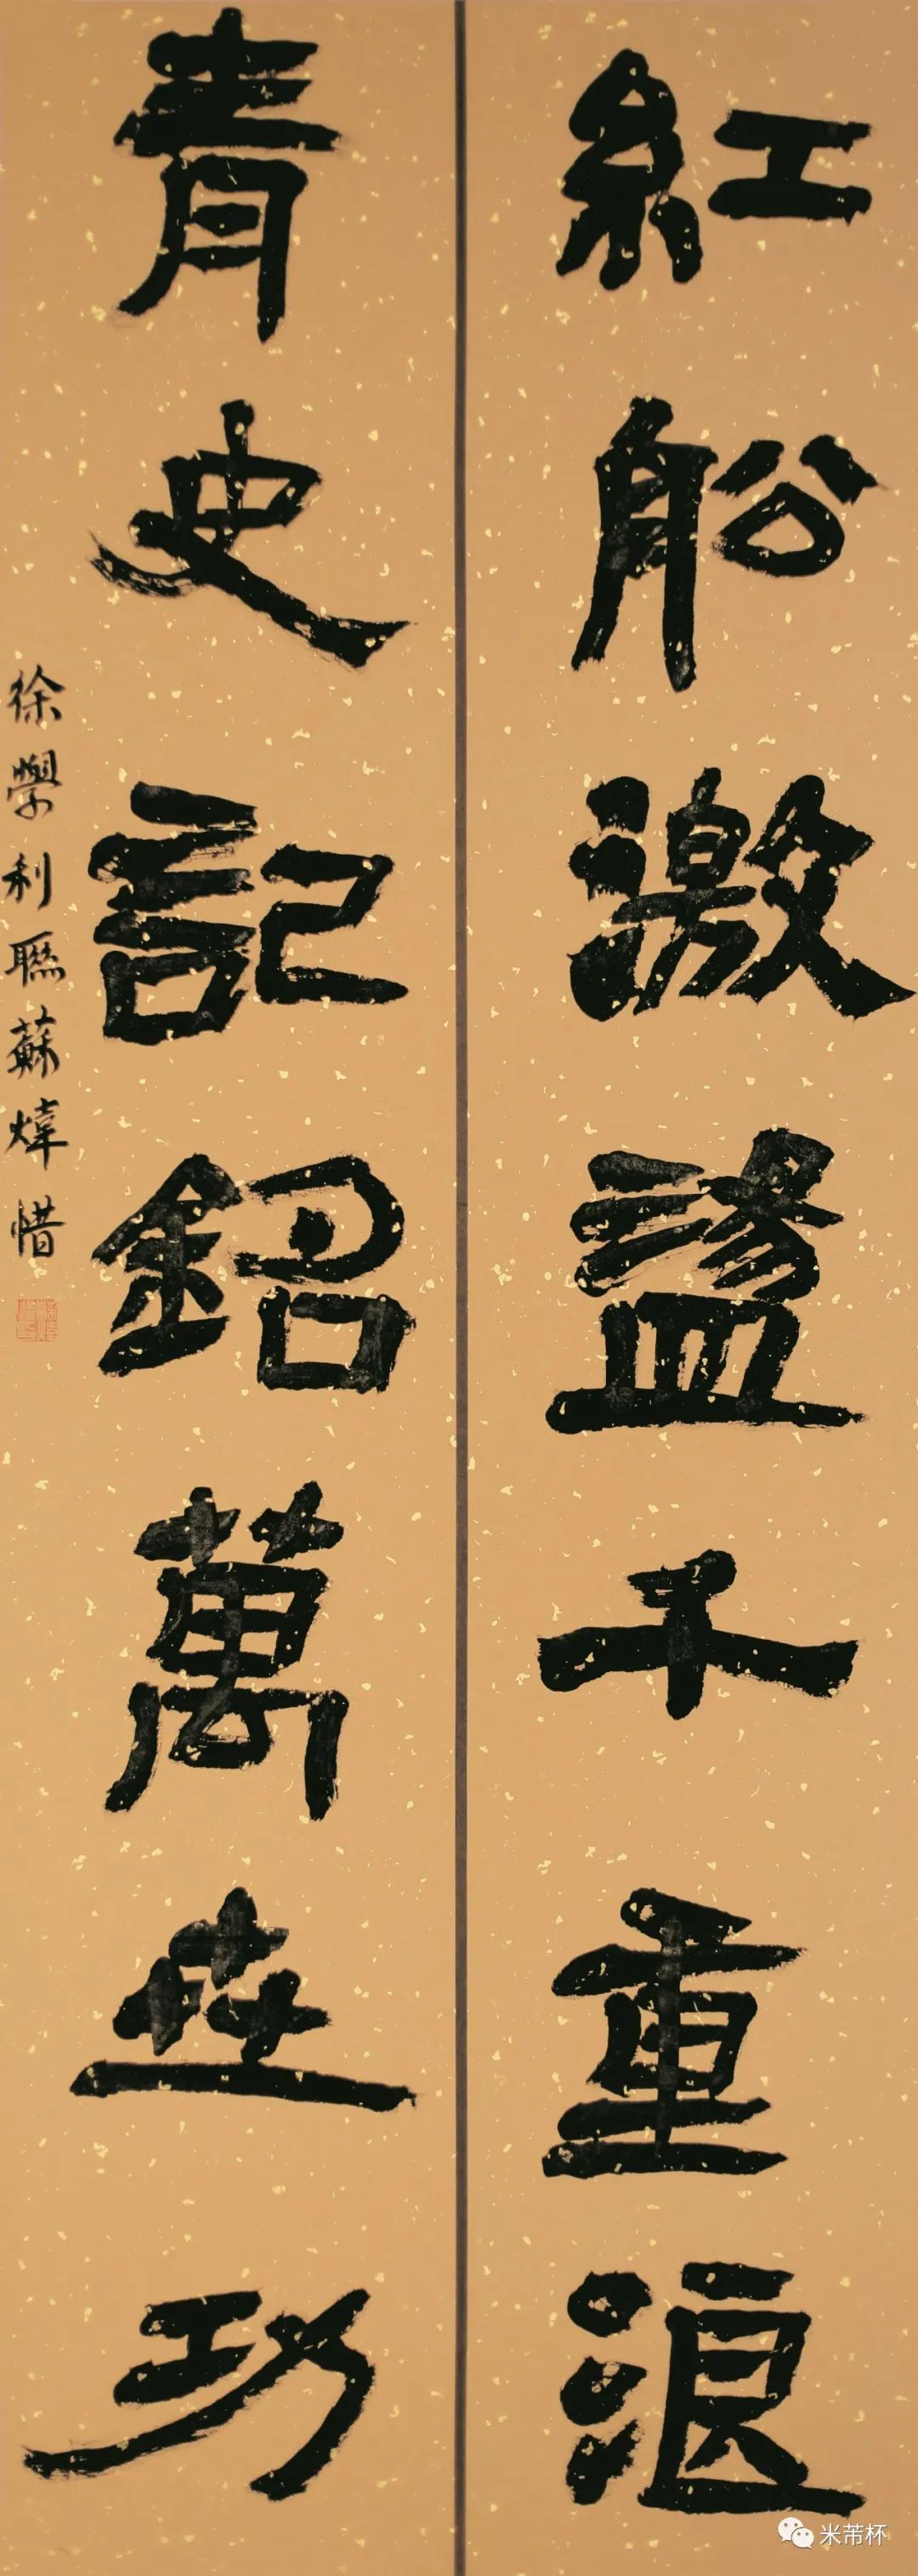 紅船激盪千重浪
青史記銘萬世功
徐學利聯蘇煒惜
米芾杯